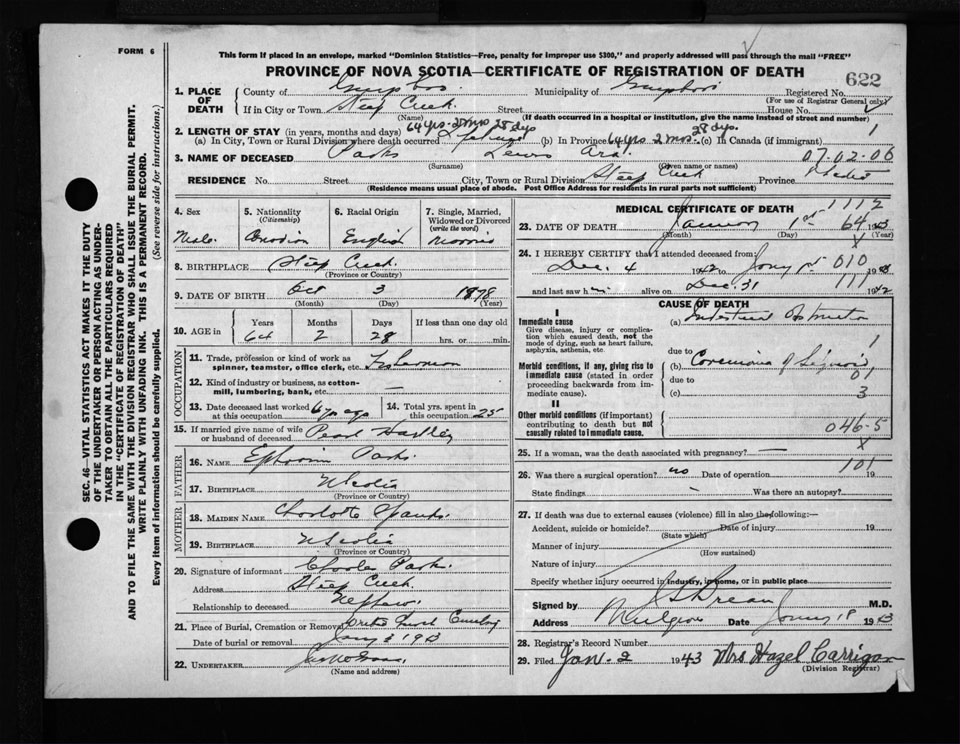 FORM 6
This form if placed in an envelope, marked "Dominion Statistics—Free, penalty for improper use $300," and properly addressed will pass through the mail "FREE"
PROVINCE OF NOVA SCOTIA—CERTIFICATE OF REGISTRATION OF DEATH
622
1. PLACE OF DEATH
County of Municipality of Registered No.
(For use of Registrar General only)
If in City or Town Steep Creek. Street House No.
(Name) (If death occurred in a hospital or institution, give the name instead of street and number)
2. LENGTH OF STAY (in years, months and days) 64 yrs. 2 mos 28 dys
(a) In City, Town or Rural Division where death occurred (b) In Province 64 yrs 2 mos. 28 dys. (c) In Canada (if immigrant) 1
3. NAME OF DECEASED Parks Lewis Ara. 07.02.06
(Surname) (Given name or names)
RESIDENCE No. Street City, Town or Rural Division Steep Creek Province N Scotia
(Residence means usual place of abode. Post Office Address for residents in rural parts not sufficient)
4. Sex
Male
5. Nationality (Citizenship)
Canadian
6. Racial Origin
English
7. Single, Married, Widowed or Divorced (write the word)
Married
8. BIRTHPLACE Steep Creek.
(Province or Country)
9. DATE OF BIRTH Oct 3 1878
(Month) (Day) (Year)
10. AGE in Years Months Days If less than one day old
64 2 28 hrs. or min.
OCCUPATION
11. Trade, profession or kind of work as spinner, teamster, office clerk, etc. Fisherman
12. Kind of industry or business, as cotton-mill, lumbering, bank, etc. —
13. Date deceased last worked at this occupation 6 yrs ago
14. Total yrs. spent in this occupation 25
15. If married give name of wife or husband of deceased Pearl Hadley
FATHER
16. NAME Ephraim Parks.
17. BIRTHPLACE N Scotia
(Province or Country)
MOTHER
18. MAIDEN NAME Charlotte
19. BIRTHPLACE N Scotia
(Province or Country)
20. Signature of informant Park.
Address Steep Creek.
Relationship to deceased Nephew.
21. Place of Burial, Cremation or Removal Cemetery
Date of burial or removal 1943
22. UNDERTAKER
(Name and address)
MEDICAL CERTIFICATE OF DEATH 1112
23. DATE OF DEATH January 1st 64 1943
(Month) (Day) (Year)
24. I HEREBY CERTIFY that I attended deceased from: X
Dec. 4 1942 to 010 19
and last saw h alive on Dec. 31 111 1942
CAUSE OF DEATH
I
Immediate cause
Give disease, injury or complication which caused death, not the mode of dying, such as heart failure, asphyxia, asthenia, etc.
(a) Intestinal Obstruction
1
due to
Morbid conditions, if any, giving rise to immediate cause (stated in order proceeding backwards from immediate cause).
(b) Carcinoma of Sigmoid
0
due to
(c) 3
II
Other morbid conditions (if important) contributing to death but not causally related to immediate cause.
046-5
25. If a woman, was the death associated with pregnancy? — X
26. Was there a surgical operation? no Date of operation 101 19
State findings — Was there an autopsy?
27. If death was due to external causes (violence) fill in also the following:—
Accident, suicide or homicide? Date of injury 19
(State which)
Manner of injury
(How sustained)
Nature of injury
Specify whether injury occurred in industry, in home, or in public place
Signed by M.D.
Address Mulgrave Date 18 1943
28. Registrar's Record Number
29. Filed Jan. 2 1943 Mrs Hazel Carrigan
(Division Registrar)
SEC. 46—VITAL STATISTICS ACT MAKES IT THE DUTY OF THE UNDERTAKER OR PERSON ACTING AS UNDERTAKER TO OBTAIN ALL THE PARTICULARS REQUIRED IN THE "CERTIFICATE OF REGISTRATION OF DEATH" AND TO FILE THE SAME WITH THE DIVISION REGISTRAR WHO SHALL ISSUE THE BURIAL PERMIT.
WRITE PLAINLY WITH UNFADING INK. THIS IS A PERMANENT RECORD.
Every item of information should be carefully supplied. (See reverse side for instructions.)